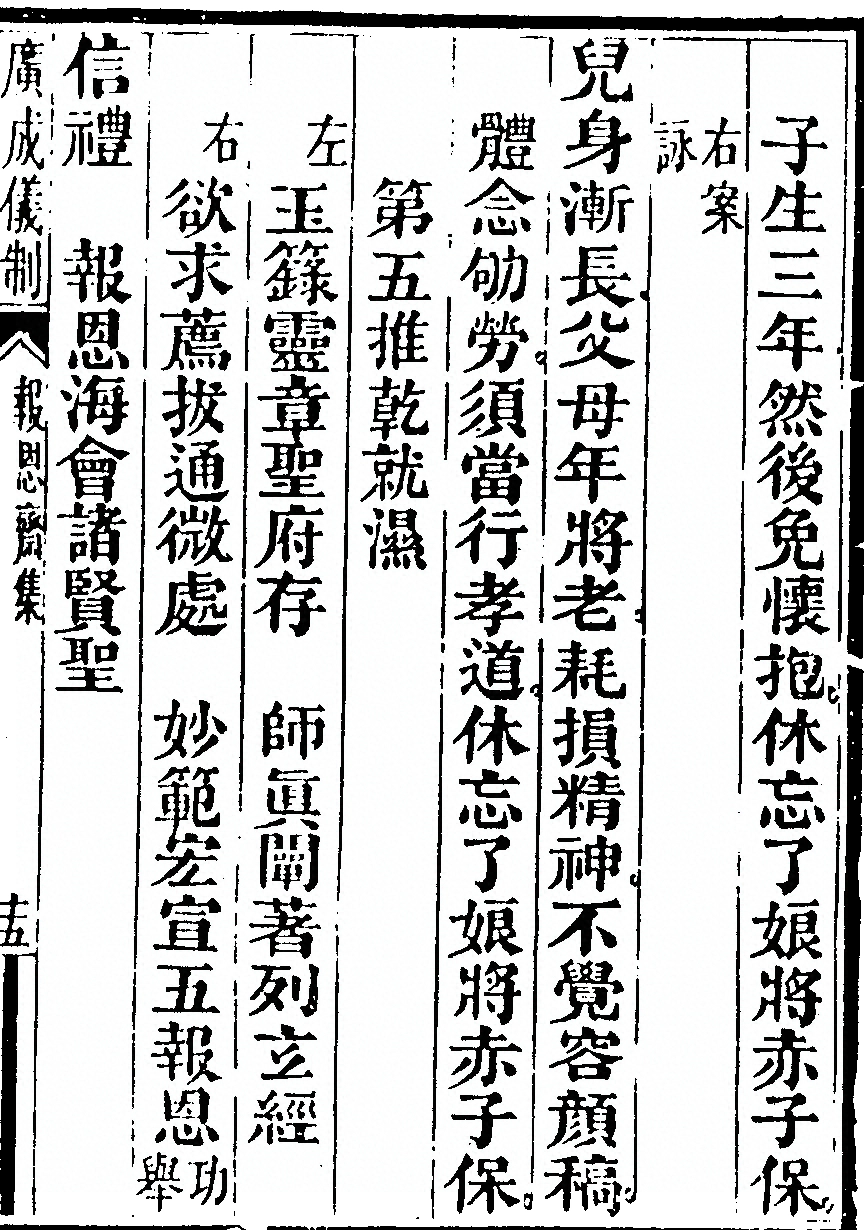 子生三年然後免懷抱休忘了娘將赤子保
右案
詠
兒身漸長父母年將老耗損精神不覺容顏稿
體念劬勞須當行孝道休忘了娘將赤子保
第五推乾就濕
左 玉籙靈章聖府存 師眞闡著列立經
右 欲求薦拔通微處 妙範宏宣五報恩 功
舉
信禮 報恩海會諸賢聖
廣成儀制 報恩齋集 十五